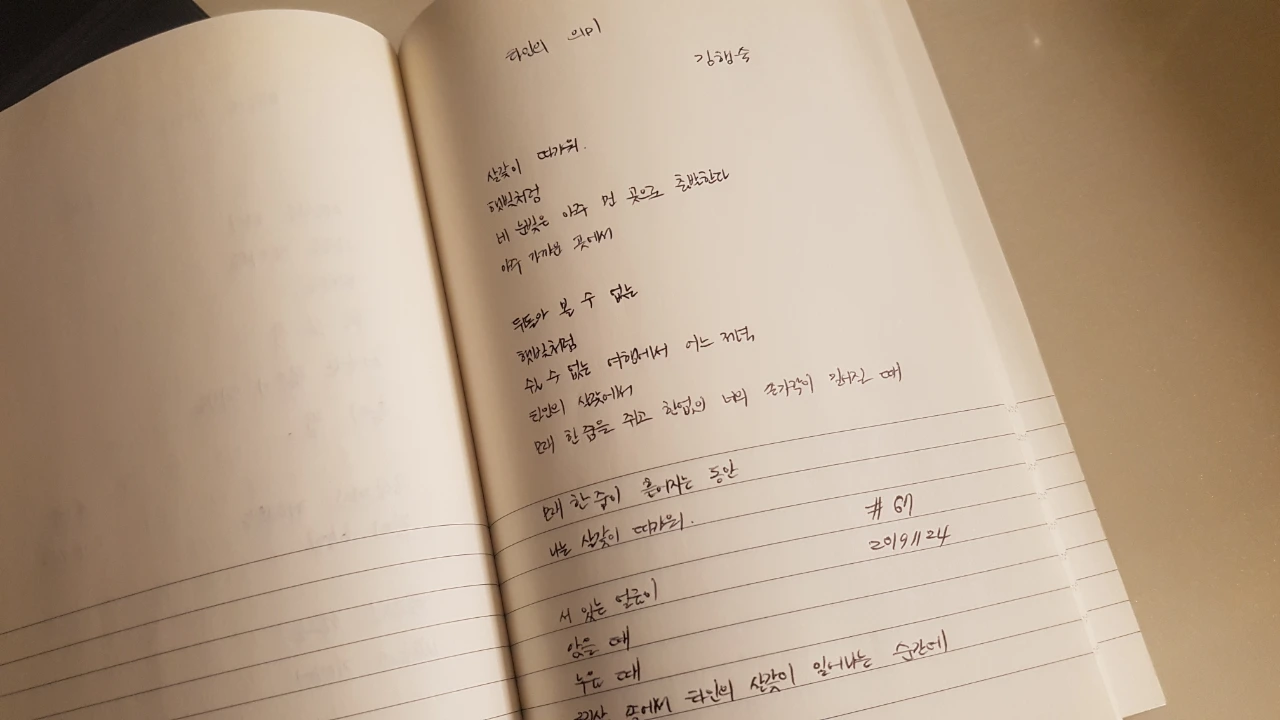 타인의 의미
김행숙
살갗이 따가워.
햇빛처럼
네 눈빛은 아주 먼 곳으로 출발한다
아주 가까운 곳에서
뒤돌아 볼 수 없는
햇빛처럼
쉴 수 없는 여행에서 어느 저녁
타인의 살갗에서
모래 한 줌을 쥐고 한없이 너의 손가락이 길어질 때
모래 한 줌이 흩어지는 동안
나는 살갗이 따가워.
# 67
2019 11 24
서 있는 얼굴이
앉을 때
누울 때
타인의 살갗이 일어나는 순간에